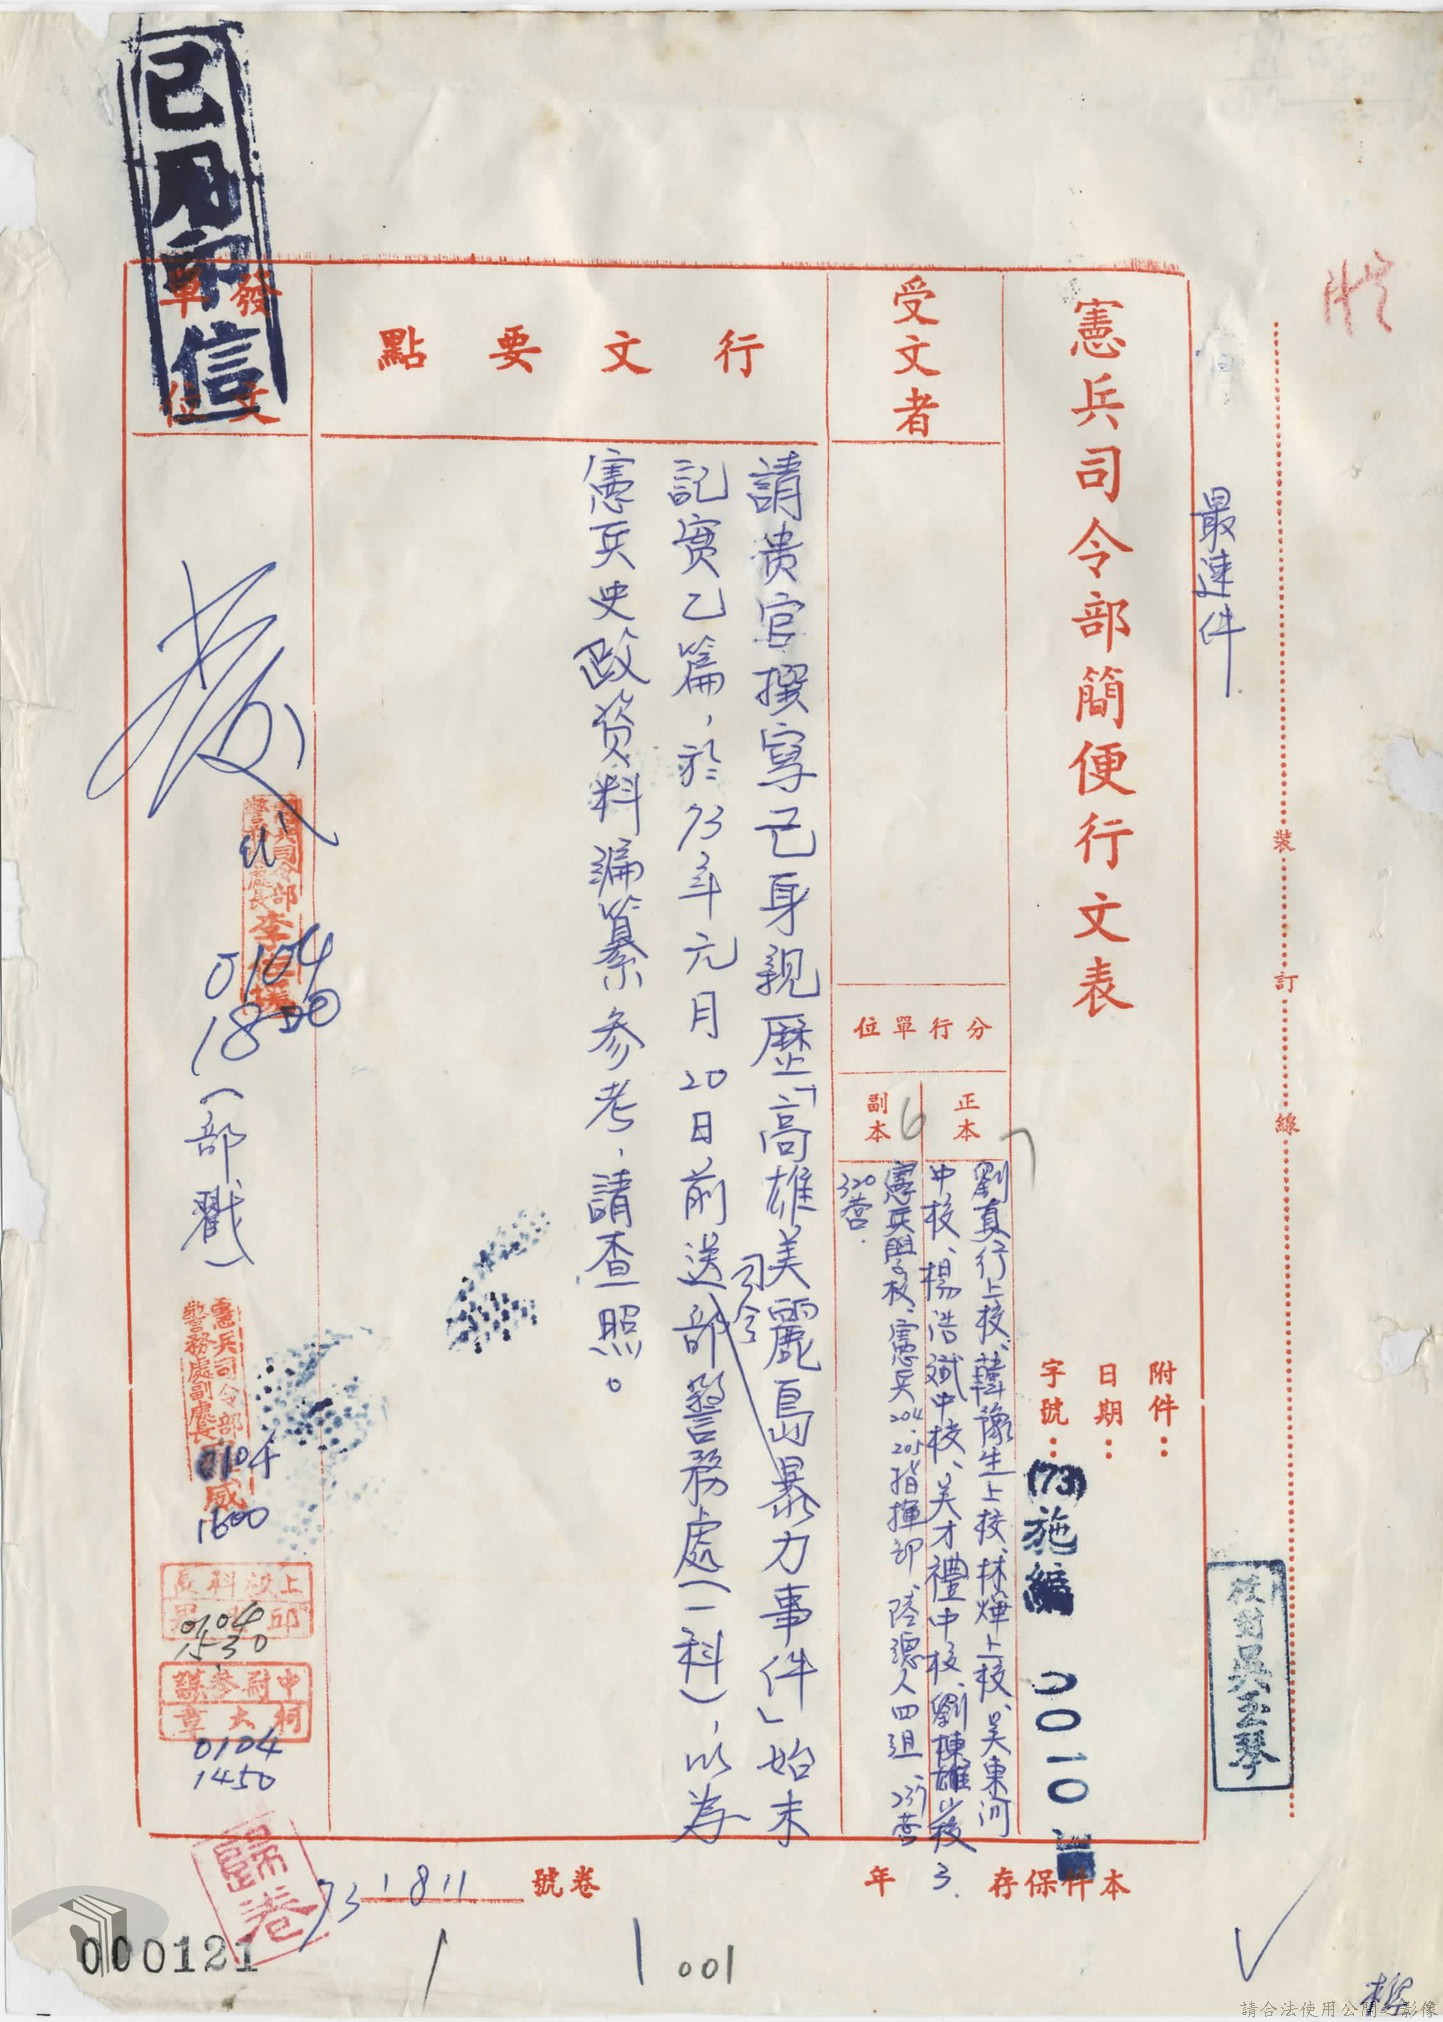 已用印信
最速件
憲兵司令部簡便行文表
附件：
日期：
字號：(73)施編
0010
受文者
分行單位
正本
劉真行上校、韓豫生上校、林燁上校、吳東河
中校、楊浩斌中校、吳才禮中校、劉棟雄
副本
憲兵學校、憲兵204、205指揮部、陸德人四組、237營
320營.
行文要點
請貴官撰寫己身親歷「高雄美麗島暴力事件」始末
記實乙篇，於73年元月20日前送司令部警務處(一科)，以為
憲兵史政資料編纂參考，請查照。
發文單位
憲兵司令部
警務處處長
0104
1800
(部戳)
憲兵司令部
警務處副處長
威
0104
1600
上校科長
邱
0104
1530
中尉參謀
柯大章
0104
1450
校對吳玉琴
裝
訂
線
本件保存3年
卷號
73 1811
歸卷
000121
001
請合法使用公開之影像